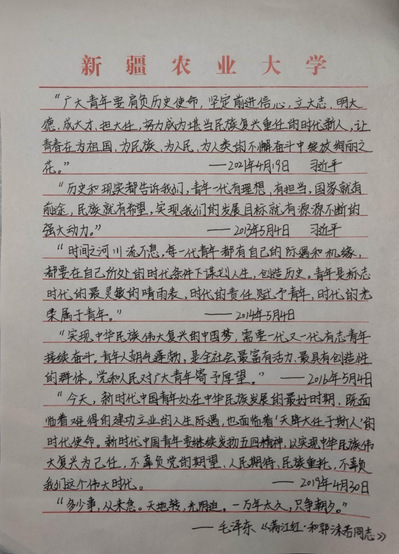 新疆农业大学
“广大青年要肩负历史使命，坚定前进信心，立大志、明大
德、成大才、担大任，努力成为堪当民族复兴重任的时代新人，让
青春在为祖国、为民族、为人民、为人类的不懈奋斗中绽放绚丽之
花。” ——2021年4月19日 习近平
“历史和现实都告诉我们，青年一代有理想、有担当，国家就有
前途，民族就有希望，实现我们的发展目标就有源源不断的
强大动力。” ——2013年5月4日 习近平
“时间之河川流不息，每一代青年都有自己的际遇和机缘，
都要在自己所处的时代条件下谋划人生、创造历史。青年是标志
时代的最灵敏的晴雨表，时代的责任赋予青年，时代的光
荣属于青年。” ——2014年5月4日
“实现中华民族伟大复兴的中国梦，需要一代又一代有志青年
接续奋斗。青年人朝气蓬勃，是全社会最富有活力、最具有创造性
的群体。党和人民对广大青年寄予厚望。” ——2016年5月4日
“今天，新时代中国青年处在中华民族发展的最好时期，既面
临着难得的建功立业的人生际遇，也面临着‘天降大任于斯人’的
时代使命。新时代中国青年要继续发扬五四精神，以实现中华民族伟
大复兴为己任，不辜负党的期望、人民期待、民族重托，不辜负
我们这个伟大时代。” ——2019年4月30日
“多少事，从来急。天地转，光阴迫。一万年太久，只争朝夕。”
——毛泽东《满江红·和郭沫若同志》